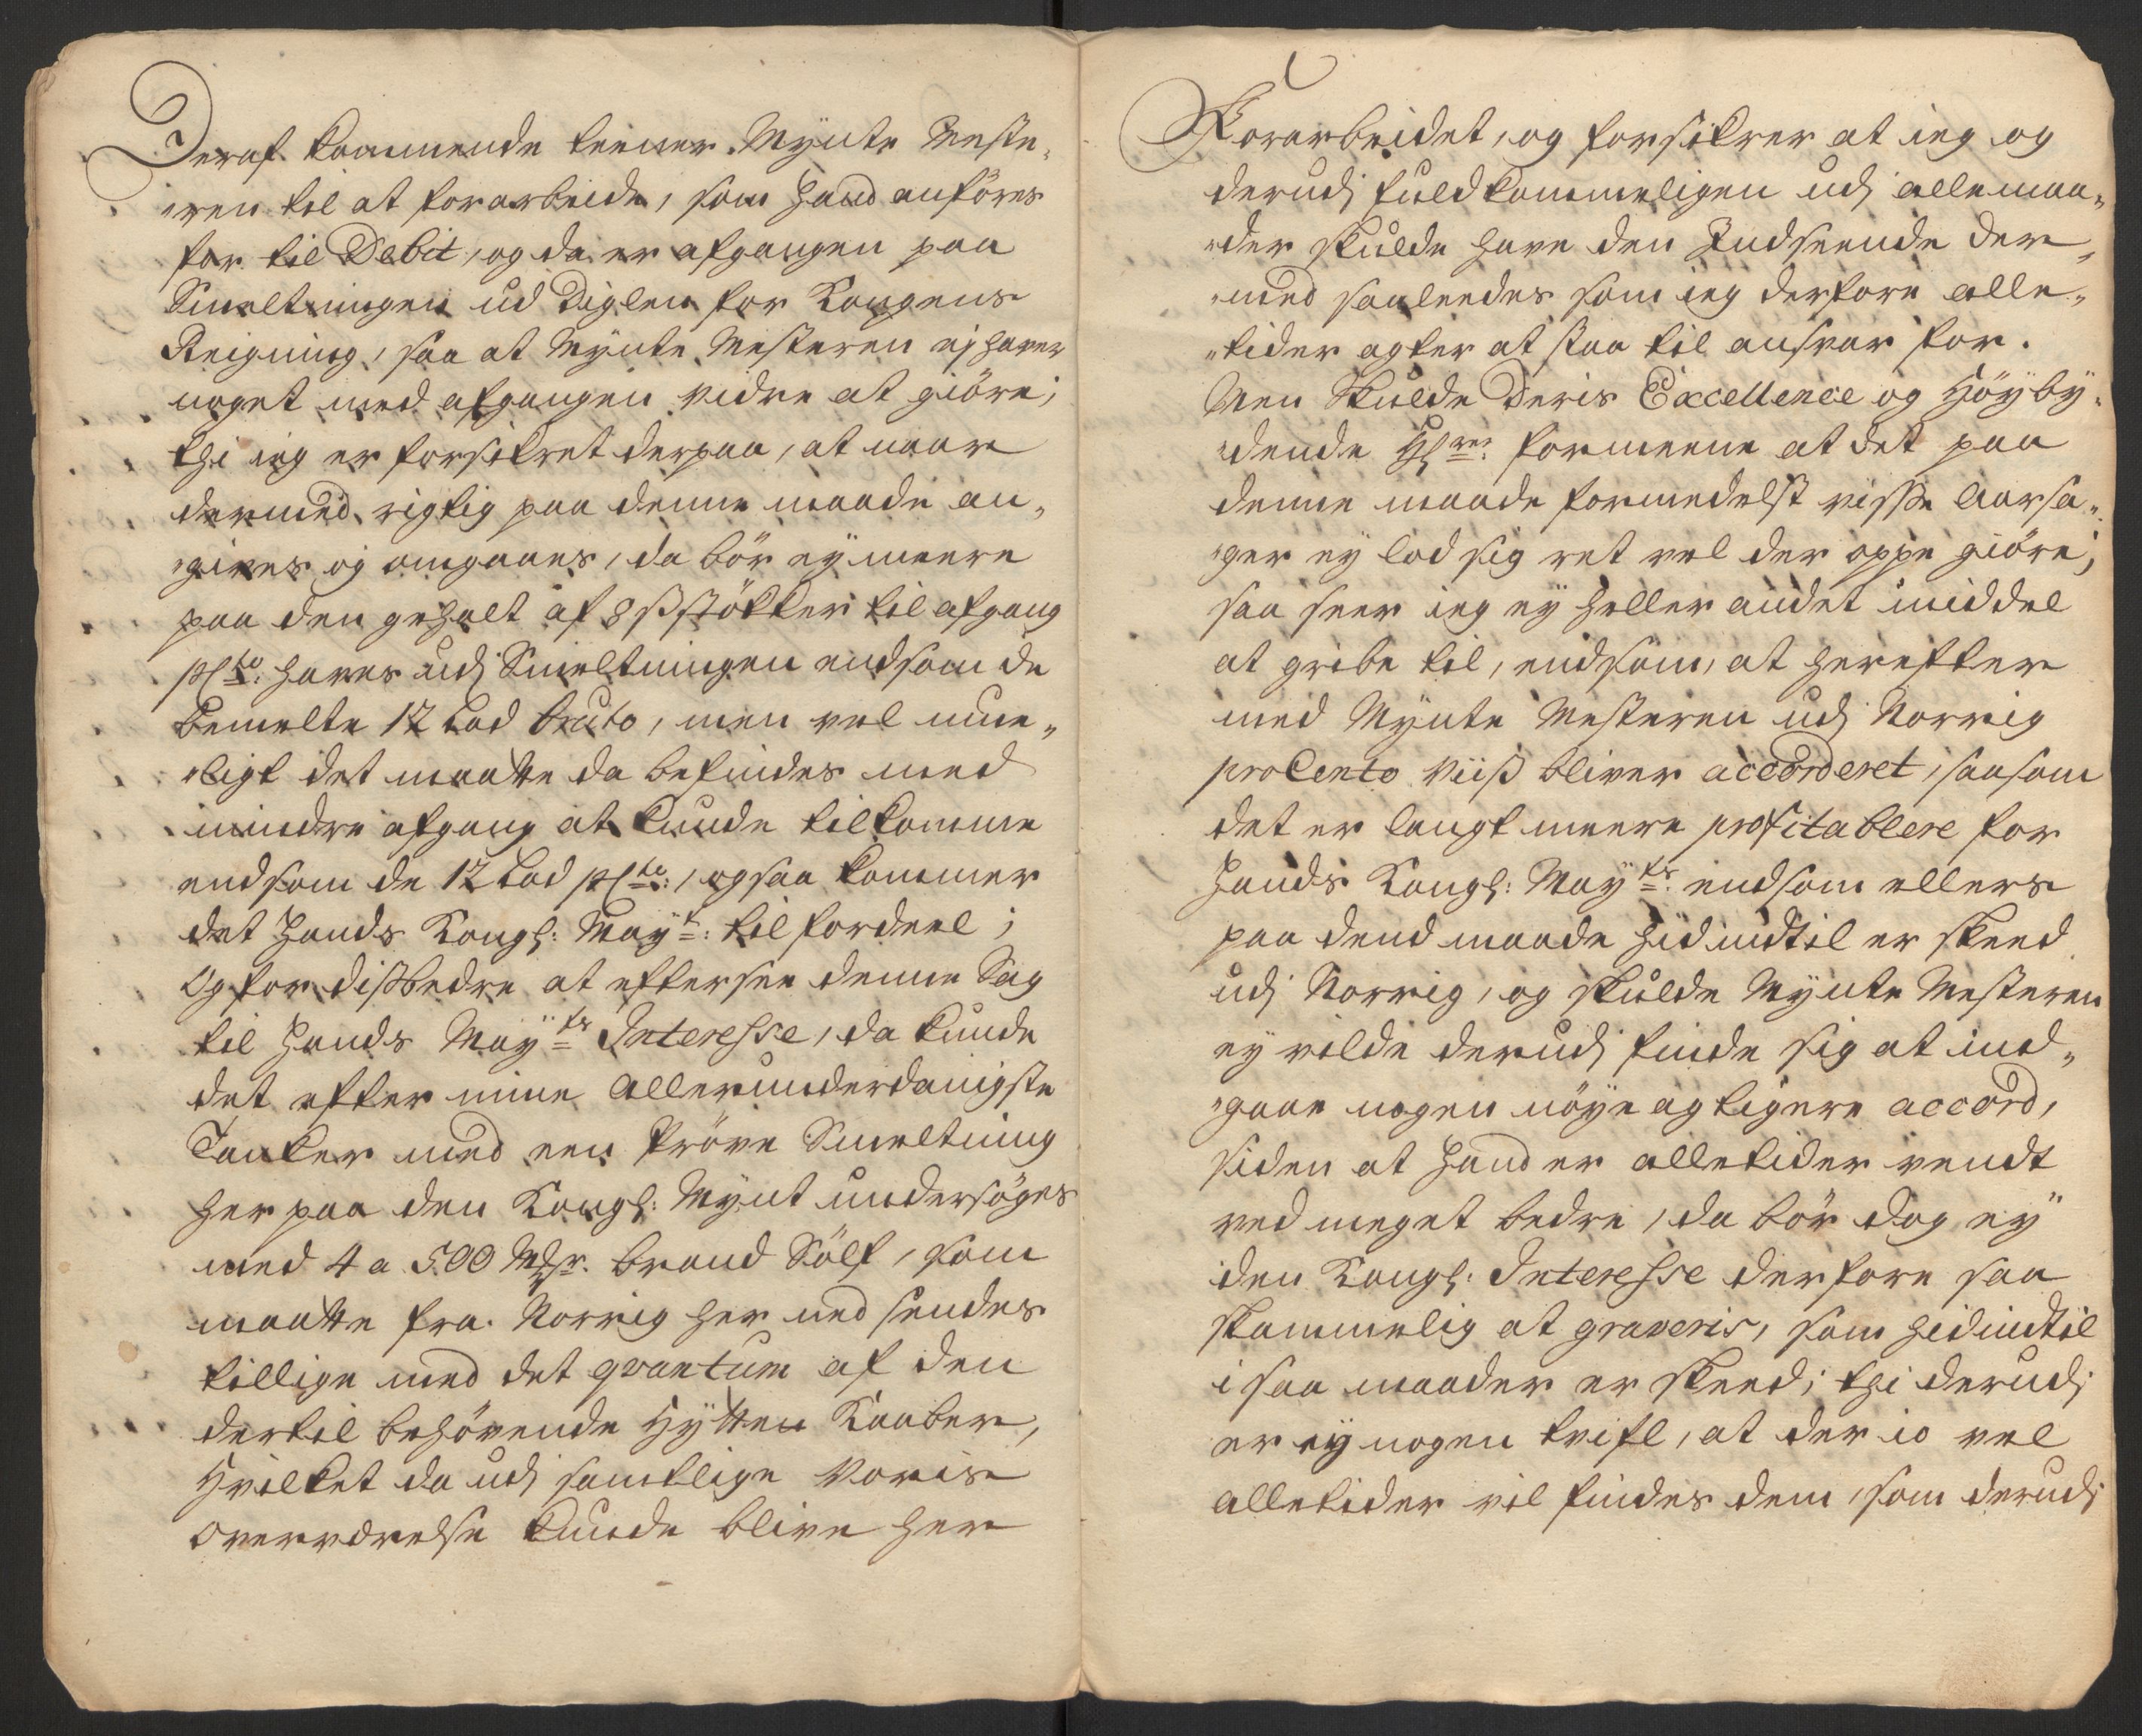 Deraf kommende teener Mynte Meste-
eren til at forarbeide, som hand anföres
for til Debit, og da er afgangen paa
Smeltningen ud Diglen for Kongens
Reigning, saa at Mynte Mesteren ej haver
noget med afgangen vidre at giöre;
thi ieg er forsikret derpaa, at naar
dermed rigtig paa denne maade an-
gives og omgaaes, da bör ey meere
paa den gehalt af 8 ß stökker til afgang
haves udj Smeltningen endsom de
bemelte 12 Lod bruto, men vel mue-
ligt det maatte da befindes med
mindre afgang at kunde tilkomme
endsom de 12 Lod, ogsaa kommer
det Hands Kongl: Mayt: til fordeel;
Og for dißbedre at eftersee denne Sag
til Hands Mayts Interesse, da kunde
det efter mine allerunderdanigste
Tanker med een Pröve Smeltning
her paa den Kongl: Mynt undersöges
med 4 a 500 Mk. brand Sölf, som
maatte fra Norrig her ned sendes
tillige med det qvantum af den
dertil behövende Hytten Kaaber,
Hvilket da udj samtlige Voris
overværelse kunde blive her
Forarbeidet, og forsikrer at ieg og
derudj fuldkommeligen udj alle maa-
der skulde have den Indseende der-
med saaleedes som ieg derfore alle-
tider agter at staa til ansvar for.
Men Skulde Deris Excellence og Höyby-
dende Hrer: formeene at det paa
denne maade formedelst visse Aarsa-
ger ey lod sig ret vel der oppe giöre;
saa seer ieg ey heller andet middel
at gribe til, endsom, at herefter
med Mynte Mesteren udj Norrig
pro Cento viiß bliver accorderet, saasom
det er langt meere profitablere for
Hands Kongl: Mayts: endsom ellers
paa dend maade hidindtil er skeed
udj Norrig, og skulde Mynte Mesteren
ey vilde derudj finde sig at ind-
gaae nogen nöye agtigere accord,
siden at Hand er alletider vendt
ved meget bedre, da bör dog ey
den Kongl: Interesse derfore saa
skammelig at graveris, som hidindtil
i saa maader er skeed; thi derudj
er ey nogen tvifl, at der io vel
alletider vil findes dem, som derudj